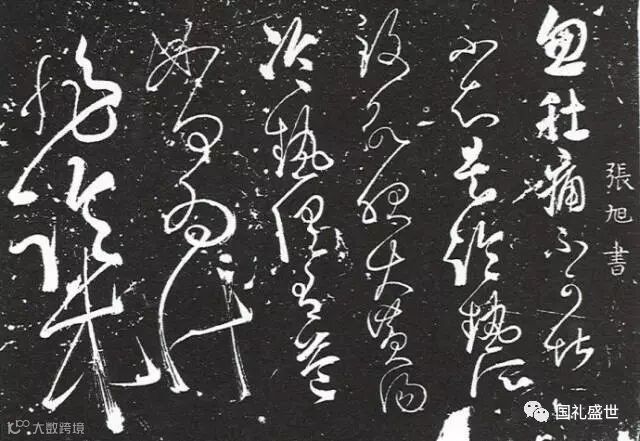 張旭書
忽肚痛不可堪
不知是冷熱所
致欲服大黄湯
冷熱俱有益
如何為計
非臨床
大数跨境
国礼盛世